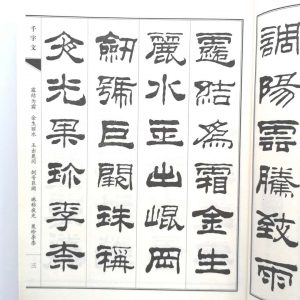 調陽雲騰致雨
露結為霜金生
麗水玉出崐岡
劍號巨闕珠稱
夜光果珍李柰
千字文
露结为霜 金生丽水 玉出昆冈 剑号巨阙 珠称夜光 果珍李柰
三